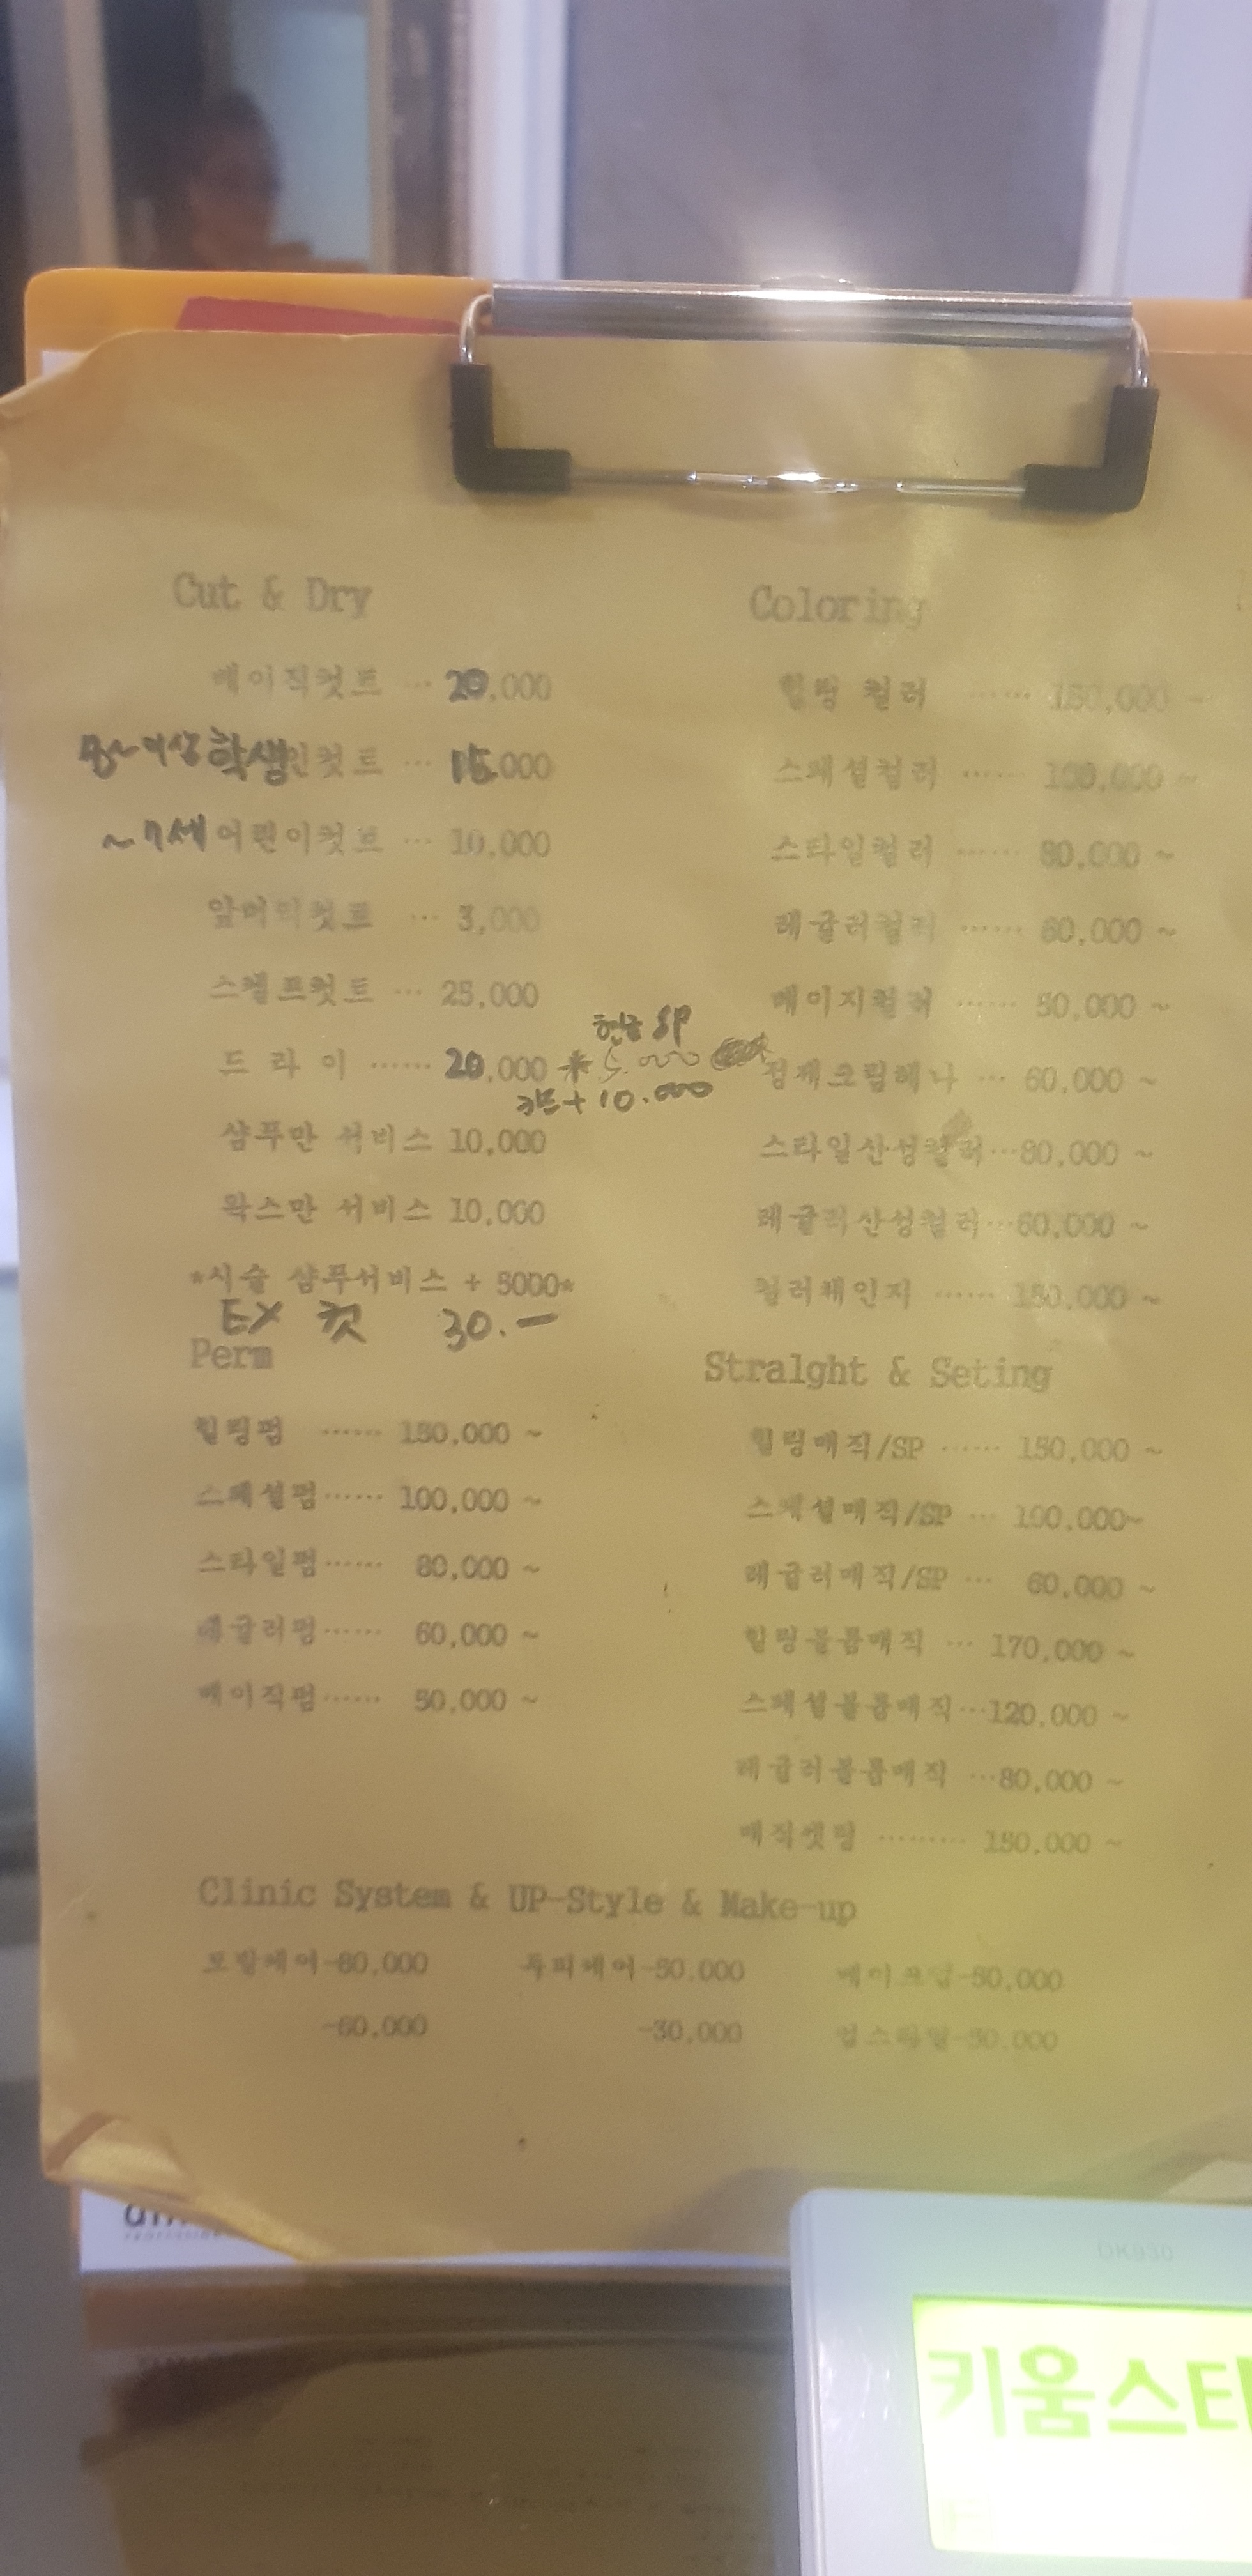 Cut & Dry
베이직컷트 … 20,000
학생인컷트 … 15,000
~7세 어린이컷트 … 10,000
앞머리컷트 … 3,000
스켈프컷트 … 25,000
현금 SP
드 라 이 …… 20,000 * 5.000
카드 + 10.000
샴푸만 서비스 10,000
왁스만 서비스 10,000
*시술 샴푸서비스 + 5000*
EX 컷 30.-
Coloring
힐링 컬러 …… 150,000 ~
스페셜컬러 …… 100,000 ~
스타일컬러 …… 80,000 ~
레귤러컬러 …… 60,000 ~
베이지컬러 …… 50,000 ~
정제크림헤나 … 60,000 ~
스타일산성컬러…80,000 ~
레귤러산성컬러…60,000 ~
컬러체인지 …… 150,000 ~
Perm
힐링펌 …… 150,000 ~
스페셜펌…… 100,000 ~
스타일펌…… 80,000 ~
레귤러펌…… 60,000 ~
베이직펌…… 50,000 ~
Stralght & Seting
힐링매직/SP …… 150,000 ~
스페셜매직/SP … 100,000~
레귤러매직/SP … 60,000 ~
힐링볼륨매직 … 170,000 ~
스페셜볼륨매직…120,000 ~
레귤러볼륨매직 …80,000 ~
매직셋팅 ……… 150,000 ~
Clinic System & UP-Style & Make-up
모발케어-80,000 두피케어-50,000 메이크업-50,000
-60,000 -30,000 업스타일-50,000
DK930
키움스타